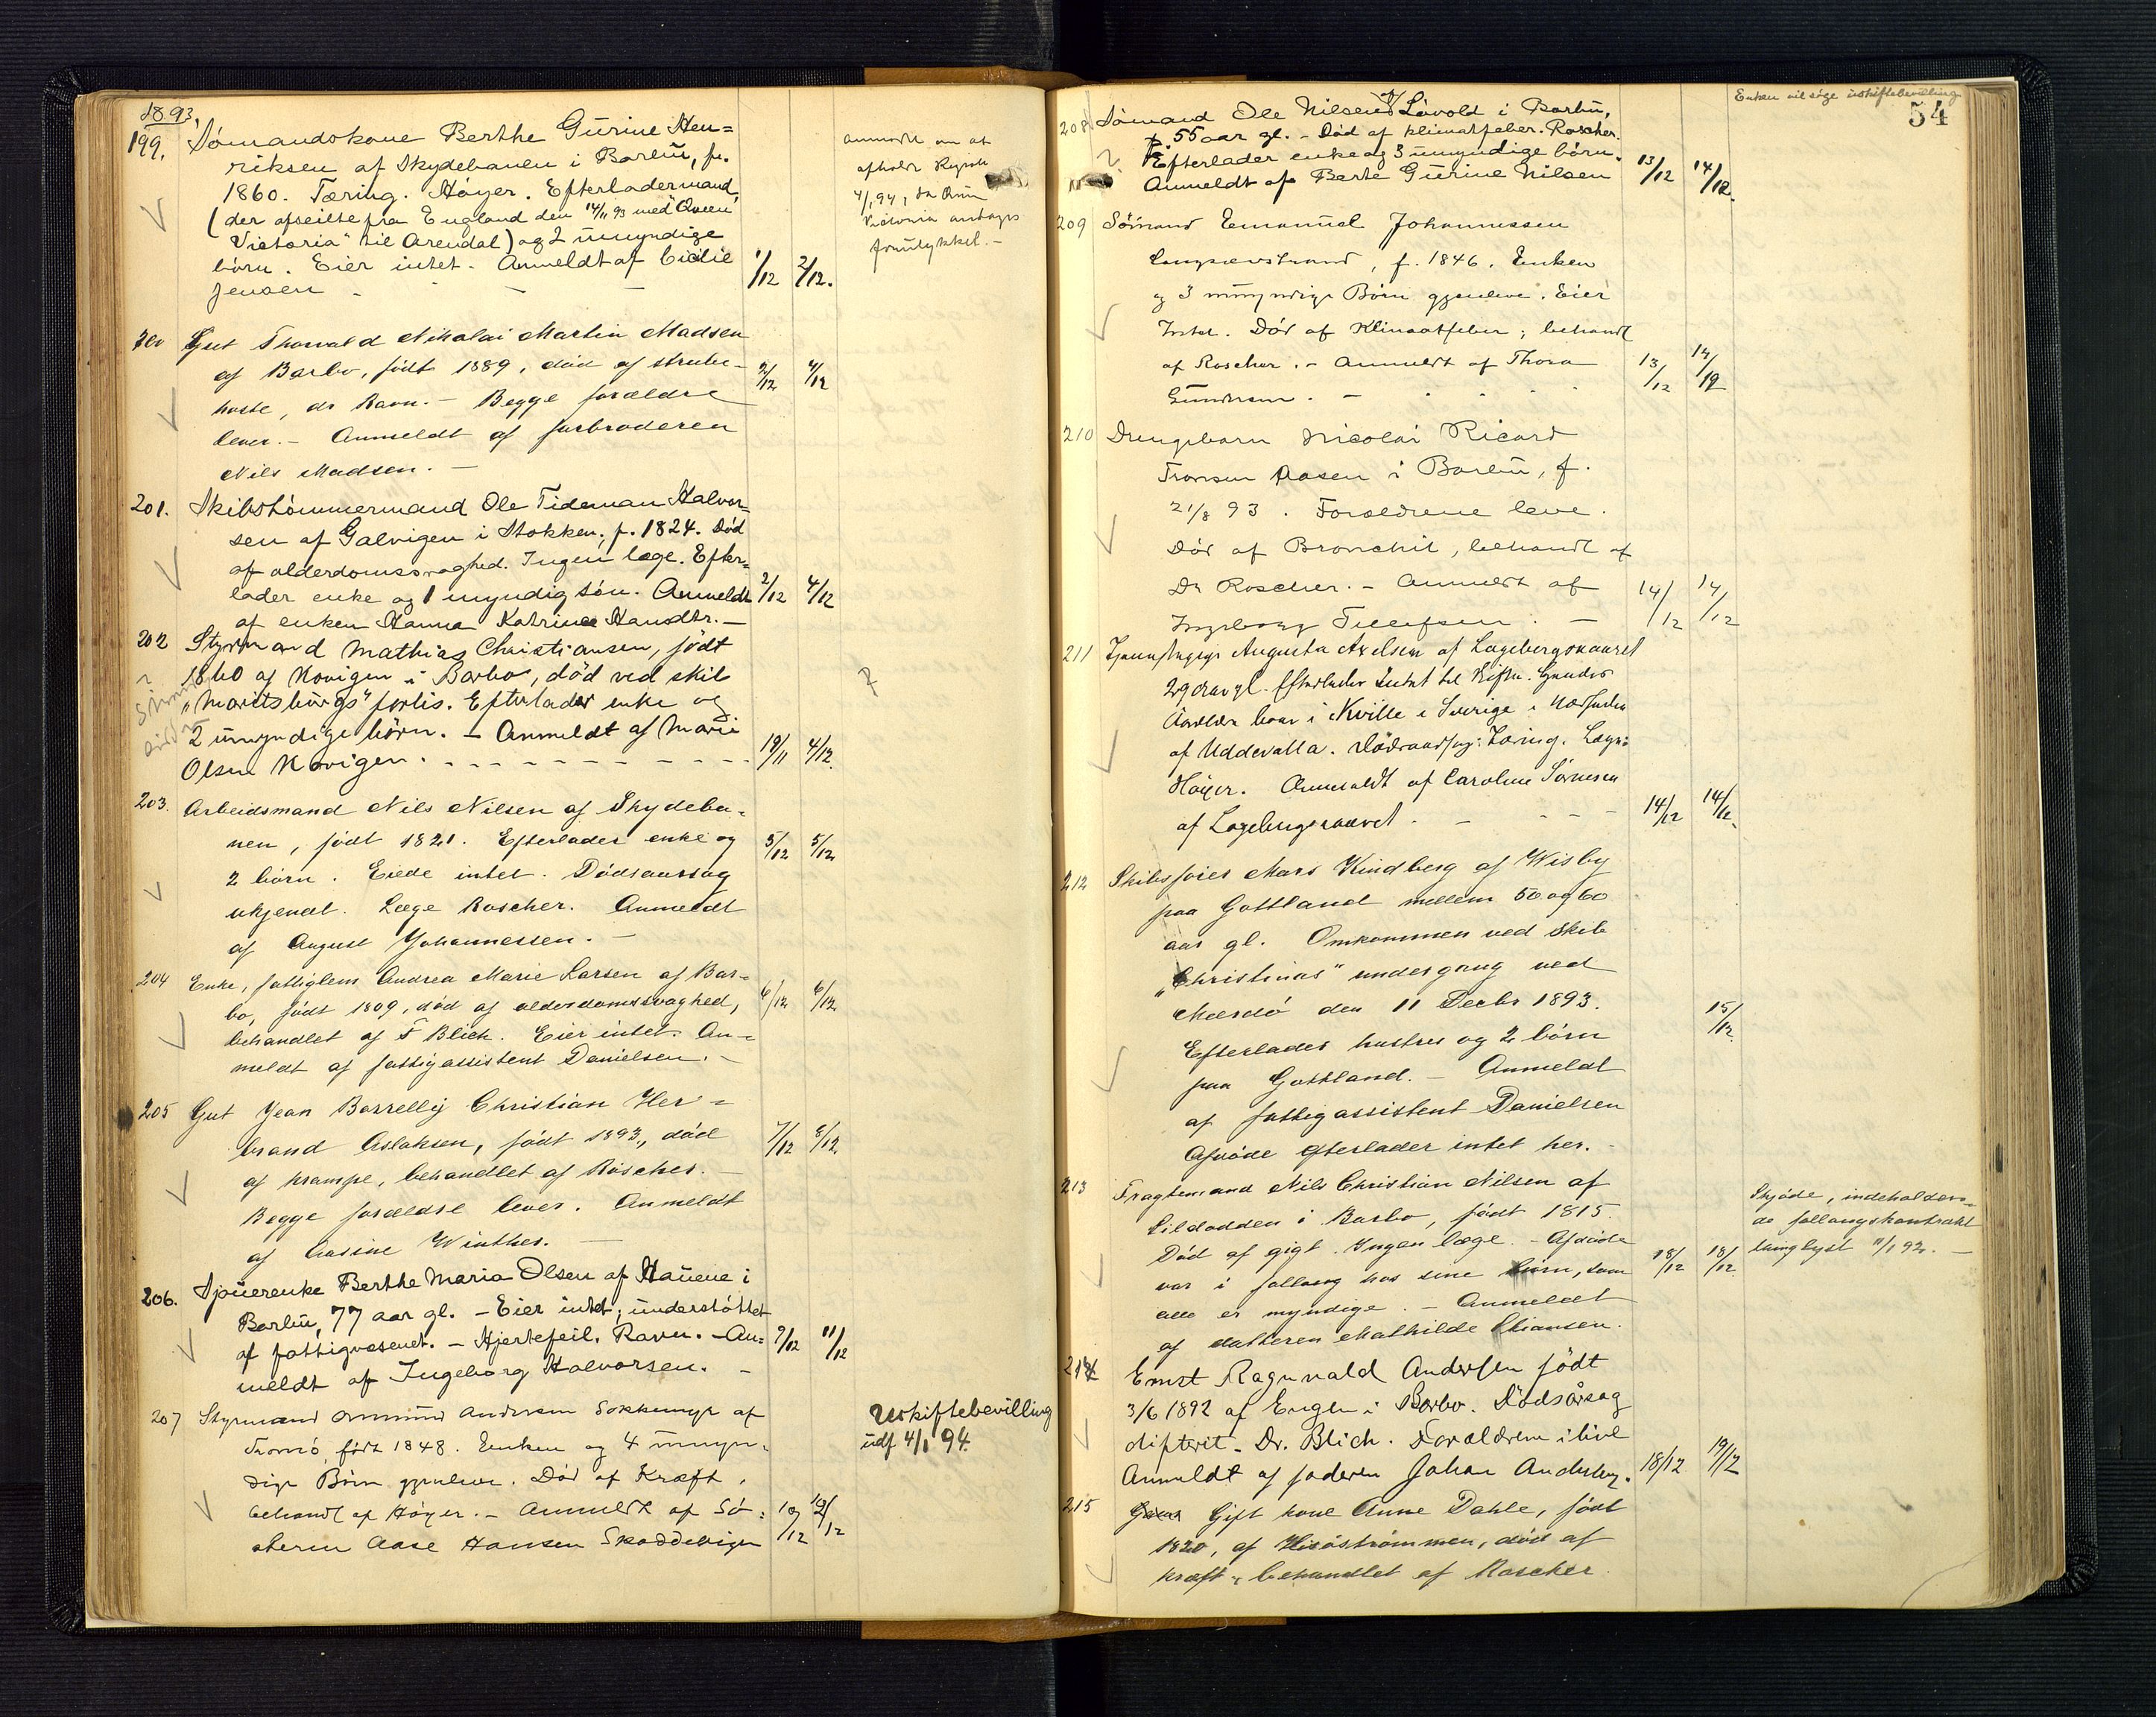 1893.
199. Sømandskone Berthe Gurine Hen=
riksen af Skydebanen i Barbu, f.
1860. Tæring. Høyer. Efterlader mand
(der afseilte fra England den 14/11 93 med "Queen
Victoria" til Arendal) og 2 umyndige
børn. Eier intet. Anmeldt af Cicilie
Jensen - - - 1/12 2/12.
anmodet om at
afholde
4/1 94, da
Victoria antages
forulykket. -
200 Gut Thorvald Nikolai Martin Madsen
af Barbo, født 1889, død af strube-
hoste, dr Ravn. - Begge forældre 2/12 4/12
lever. - Anmeldt af farbroderen
Nils Madsen. -
201. Skibstømmermand Ole Tideman Halvor=
sen af Galvigen i Stokken, f. 1824. Død
af alderdomssvaghed. Ingen læge. Efter=
lader enke og 1 myndig søn. Anmeldt 2/12 4/12
af enken Hanna Katrine Hansdtr. -
202 Styrmand Mathias Christiansen, født
1860 af Novigen i Barbo, død ved skib
"Moritsburgs" forlis. Efterlader enke og
2 umyndige børn. - Anmeldt af Marie
Olsen Novigen. - - - - - - - - - 19/11 4/12.
203. Arbeidsmand Nils Nilsen af Skydeba-
nen, født 1821. Efterlader enke og 5/12 5/12
2 børn. Eiede intet. Dødsaarsag
ukjendt. Læge Roscher. Anmeldt
af August Johannessen. -
204 Enke, fattiglem Andrea Marie Larsen af Bar-
bo, født 1809, død af alderdomssvaghed, 6/12 6/12
behandlet af F Blich. Eier intet. An-
meldt af fattigassistent Danielsen. -
205 Gut Jean Borrelly Christian Her=
brand Aslaksen, født 1893, død 7/12 8/12
af krampe, behandlet af Roscher. -
Begge forældre lever. Anmeldt
af Gusine Winther. -
206. Spuerenke Berthe Maria Olsen af Hauene i
Barbu, 77 aar gl. - Eier intet; understøttet
af fattigvæsenet. - Hjertefeil. Ravn. - An= 9/12 11/12
meldt af Ingeborg Halvorsen. -
207 Styrmand Ommund Andersen Sokkemyr af
Tromø, født 1848. Enken og 4 umyn-
dige Børn gjenlever. Død af Kræft,
behandl af Høyer. - Anmeldt af Sø:
steren Aase Hansen Skoddevigen 12/12
Uskiftebevilling
udf 4/1 94.
54
Enken vil søge uskiftebevilling
208 Sømand Ole Nilsen af Løvold i Barbu,
55 aar gl. - Død af klimatfeber. Roscher.
Efterlader enke og 3 umyndige børn.
Anmeldt af Berte Gurine Nilsen 13/12 14/12.
209 Sømand Emanuel Johannessen
Langsævstrand, f. 1846. Enken
og 3 umyndige Børn gjenleve. Eier
Intet. Død af Klimatfeber; behandl
af Roscher. - Anmeldt af Thora 13/12 14/12
Gundersen. -
210 Drengebarn Nicolai Ricard
Tronsen Aasen i Barbu, f.
21/8 93. Forældrene leve.
Død af Bronchit, behandl af
Dr Roscher. - Anmeldt af 14/12 14/12
Ingeborg Tellefsen. -
211 Tjenestepige Augusta Axelsen af Lagebergsvauret
29 aar gl. Efterlader Intet til Skifte. Hendes
Forældre boer i Kville i Sverige i Nærheden
af Uddevalla. Dødsaarsag: Tæring. Læge:
Høyer. Anmeldt af Caroline Sørensen
14/12 14/12.
212 Skibsfører Mars Kindberg af Wisby
paa Gottland mellem 50 og 60
aar gl. Omkommen ved Skib
"Christinas" undergang ved
Mærdø den 11 Decbr 1893. 15/12
Efterlader hustru og 2 børn
paa Gottland. - Anmeldt
af fattigassistent Danielsen
Afdøde efterlader intet her. -
213 Fragtemand Nils Christian Nilsen af
Sildodden i Barbo, født 1815.
Død af gigt. Ingen læge. - Afdøde
var i follaug hos sine børn, som 18/12 18/12.
alle er myndige. - Anmeldt
af datteren Mathilde Chiansen.
Skjøde, indeholden-
de follaugskontrakt
tinglyst 11/1 92. -
214 Ernst Ragnvald Andersen født
3/6 1892 af Engen i Barbo. Dödsårsag
difterit - Dr. Blich. Forældrene i live
Anmeldt af faderen Johan Andersen. 18/12 19/12
215 Gift kone Anne Dahle, født
1820, af Hisøstrømmen, død af
kræft, behandlet af Roscher